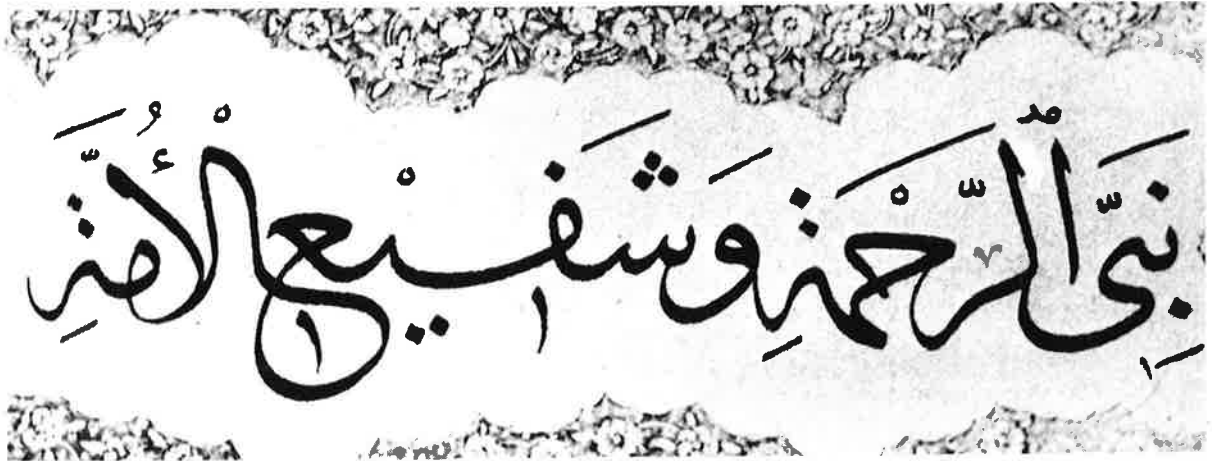 نَبِيِّ الرَّحْمَةِ وَشَفِيْعِ الْأُمَّةِ